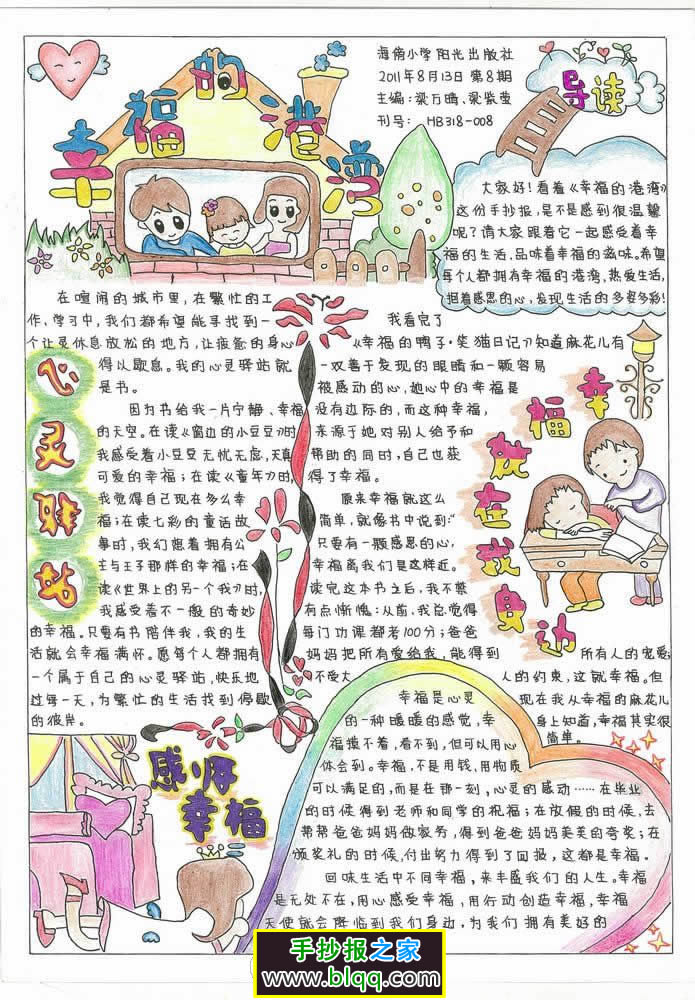 幸福的港湾
海傍小学阳光出版社
2011年8月13日 第8期
主编：梁方晴、梁紫莹
刊号：HB318-008
导读
大家好！看着《幸福的港湾》
这份手抄报，是不是感到很温馨
呢？请大家跟着它一起感受着幸
福的生活，品味着幸福的滋味。希望
每个人都拥有幸福的港湾，热爱生活，
担着感恩的心，发现生活的多姿多彩！
心灵驿站
在喧闹的城市里，在繁忙的工
作、学习中，我们都希望能寻找到一
个让灵休息放松的地方，让疲惫的身心
得以歇息。我的心灵驿站就
是书。
因为书给我一片宁静、幸福
的天空。在读《窗边的小豆豆》时，
我感受着小豆豆无忧无虑，天真
可爱的幸福；在读《童年》时，
我觉得自己现在多么幸
福；在读七彩的童话故
事时，我幻想着拥有公
主与王子那样的幸福；在
读《世界上的另一个我》时，
我感受着不一般的奇妙
的幸福。只要有书陪伴我，我的生
活就会幸福满怀。愿每个人都拥有
一个属于自己的心灵驿站，快乐地
过每一天，为繁忙的生活找到停歇
的彼岸。
幸福就在我身边
我看完了
《幸福的鸭子·笑猫日记》知道麻花儿有
一双善于发现的眼睛和一颗容易
被感动的心，她心中的幸福是
没有边际的，而这种幸福，
来源于她对别人给予和
帮助的同时，自己也获
得了幸福。
原来幸福就这么
简单，就像书中说到：“
只要有一颗感恩的心，
幸福离我们是这样近。
读完这本书之后，我不禁
有点惭愧：从前，我总觉得
每门功课都考100分；爸爸
妈妈把所有爱给我，能得到 所有人的宠爱；
不受大 人的约束，这就幸福。但
现在我从幸福的麻花儿
身上知道，幸福其实很
简单。
感悟幸福
幸福是心灵
的一种暖暖的感觉，幸
福摸不着，看不到，但可以用心
体会到。幸福，不是用钱，用物质
可以满足的，而是在那一刻，心灵的感动……在毕业
的时候得到老师和同学的祝福；在放假的时候，去
帮帮爸爸妈妈做家务，得到爸爸妈妈美美的夸奖；在
颁奖礼的时候，付出努力得到了回报，这都是幸福。
回味生活中不同幸福，来丰盛我们的人生。幸福
是无处不在，用心感受幸福，用行动创造幸福，幸福
天使就会降临到我们身边，为我们拥有美好的
手抄报之家
www.blqq.com